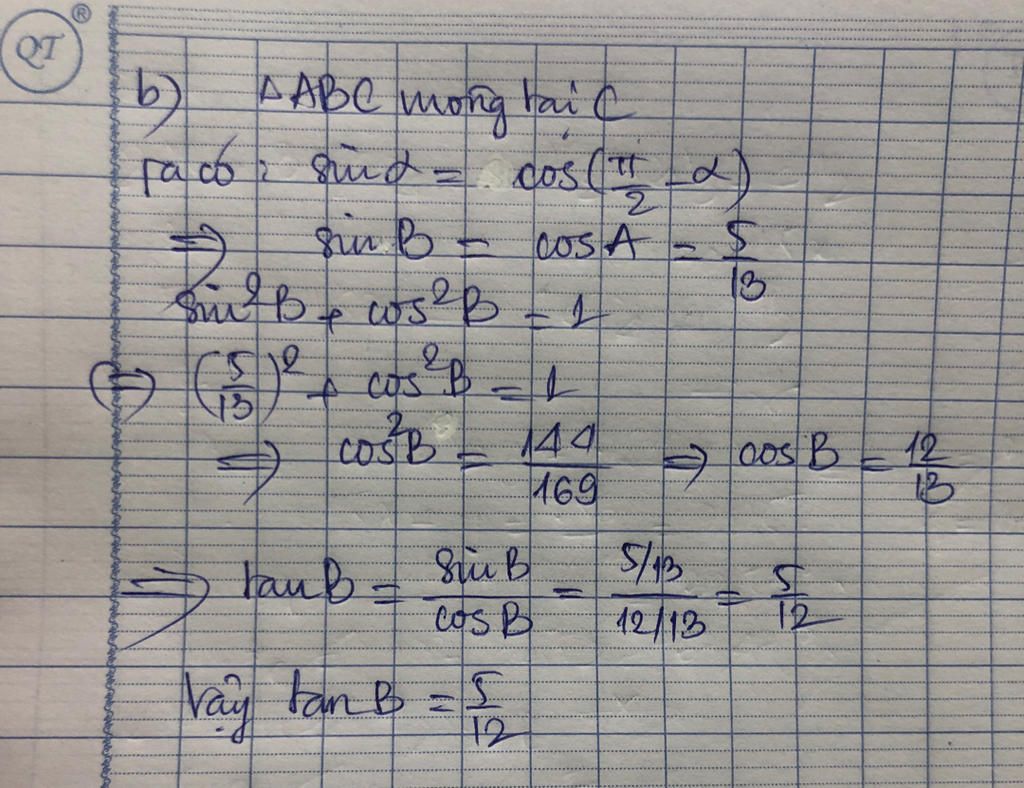 QT ®
b) ΔABC vuông tại C
Ta có: sin α = cos(π/2 - α)
⇒ sin B = cos A = 5/13
sin²B + cos²B = 1
⇔ (5/13)² + cos²B = 1
⇒ cos²B = 144/169 ⇒ cos B = 12/13
⇒ tan B = sin B / cos B = (5/13)/(12/13) = 5/12
Vậy tan B = 5/12